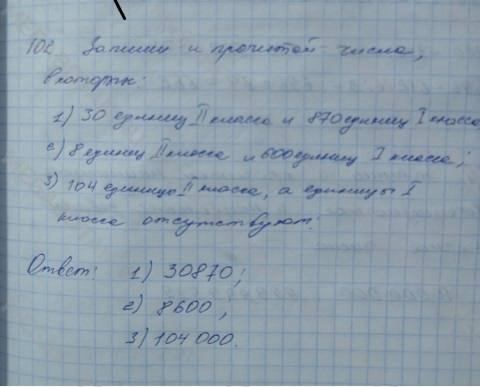 102. Запиши и прочитай числа,
в которых:
1) 30 единиц II класса и 870 единиц I класса
2) 8 единиц II класса и 600 единиц I класса;
3) 104 единицы II класса, а единицы I
класса отсутствуют.
Ответ: 1) 30870;
2) 8600,
3) 104 000.